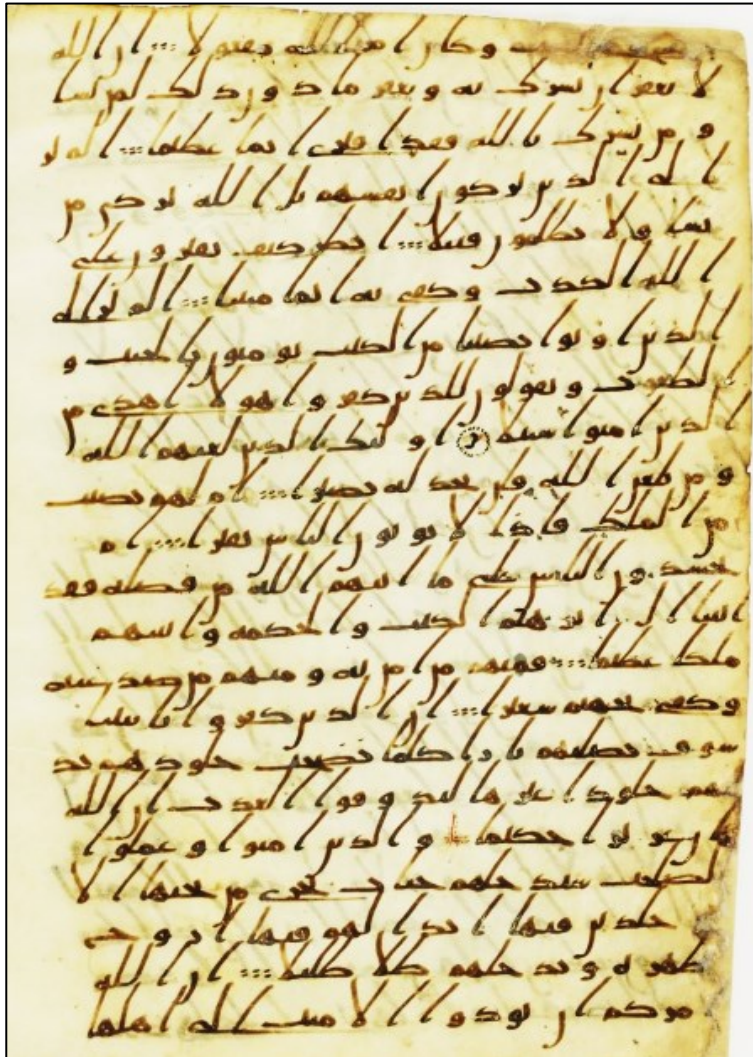 السبت وكان امر الله مفعولا ان الله
لا يغفر ان يشرك به ويغفر ما دون ذلك لمن يشا
ومن يشرك بالله فقد افترى اثما عظيما الم تر
الى الذين يزكون انفسهم بل الله يزكي من
يشا ولا يظلمون فتيلا انظر كيف يفترون على
الله الكذب وكفى به اثما مبينا الم تر الى
الذين اوتوا نصيبا من الكتب يومنون بالجبت و
الطغوت ويقولون للذين كفروا هولا اهدى من
الذين امنوا سبيلا اولئك الذين لعنهم الله
ومن يلعن الله فلن تجد له نصيرا ام لهم نصيب
من الملك فاذا لا يوتون الناس نقيرا ام
يحسدون الناس على ما اتيهم الله من فضله فقد
اتينا ال ابرهيم الكتب والحكمه واتينهم
ملكا عظيما فمنهم من امن به ومنهم من صد عنه
وكفى بجهنم سعيرا ان الذين كفروا بايتنا
سوف نصليهم نارا كلما نضجت جلودهم بد
لنهم جلودا غيرها ليذوقوا العذب ان الله
كان عزيزا حكيما والذين امنوا وعملوا
الصلحت سندخلهم جنت تجري من تحتها الا
خلدين فيها ابدا لهم فيها ازوج
مطهره وندخلهم ظلا ظليلا ان الله
يامركم ان تودوا الامنت الى اهلها